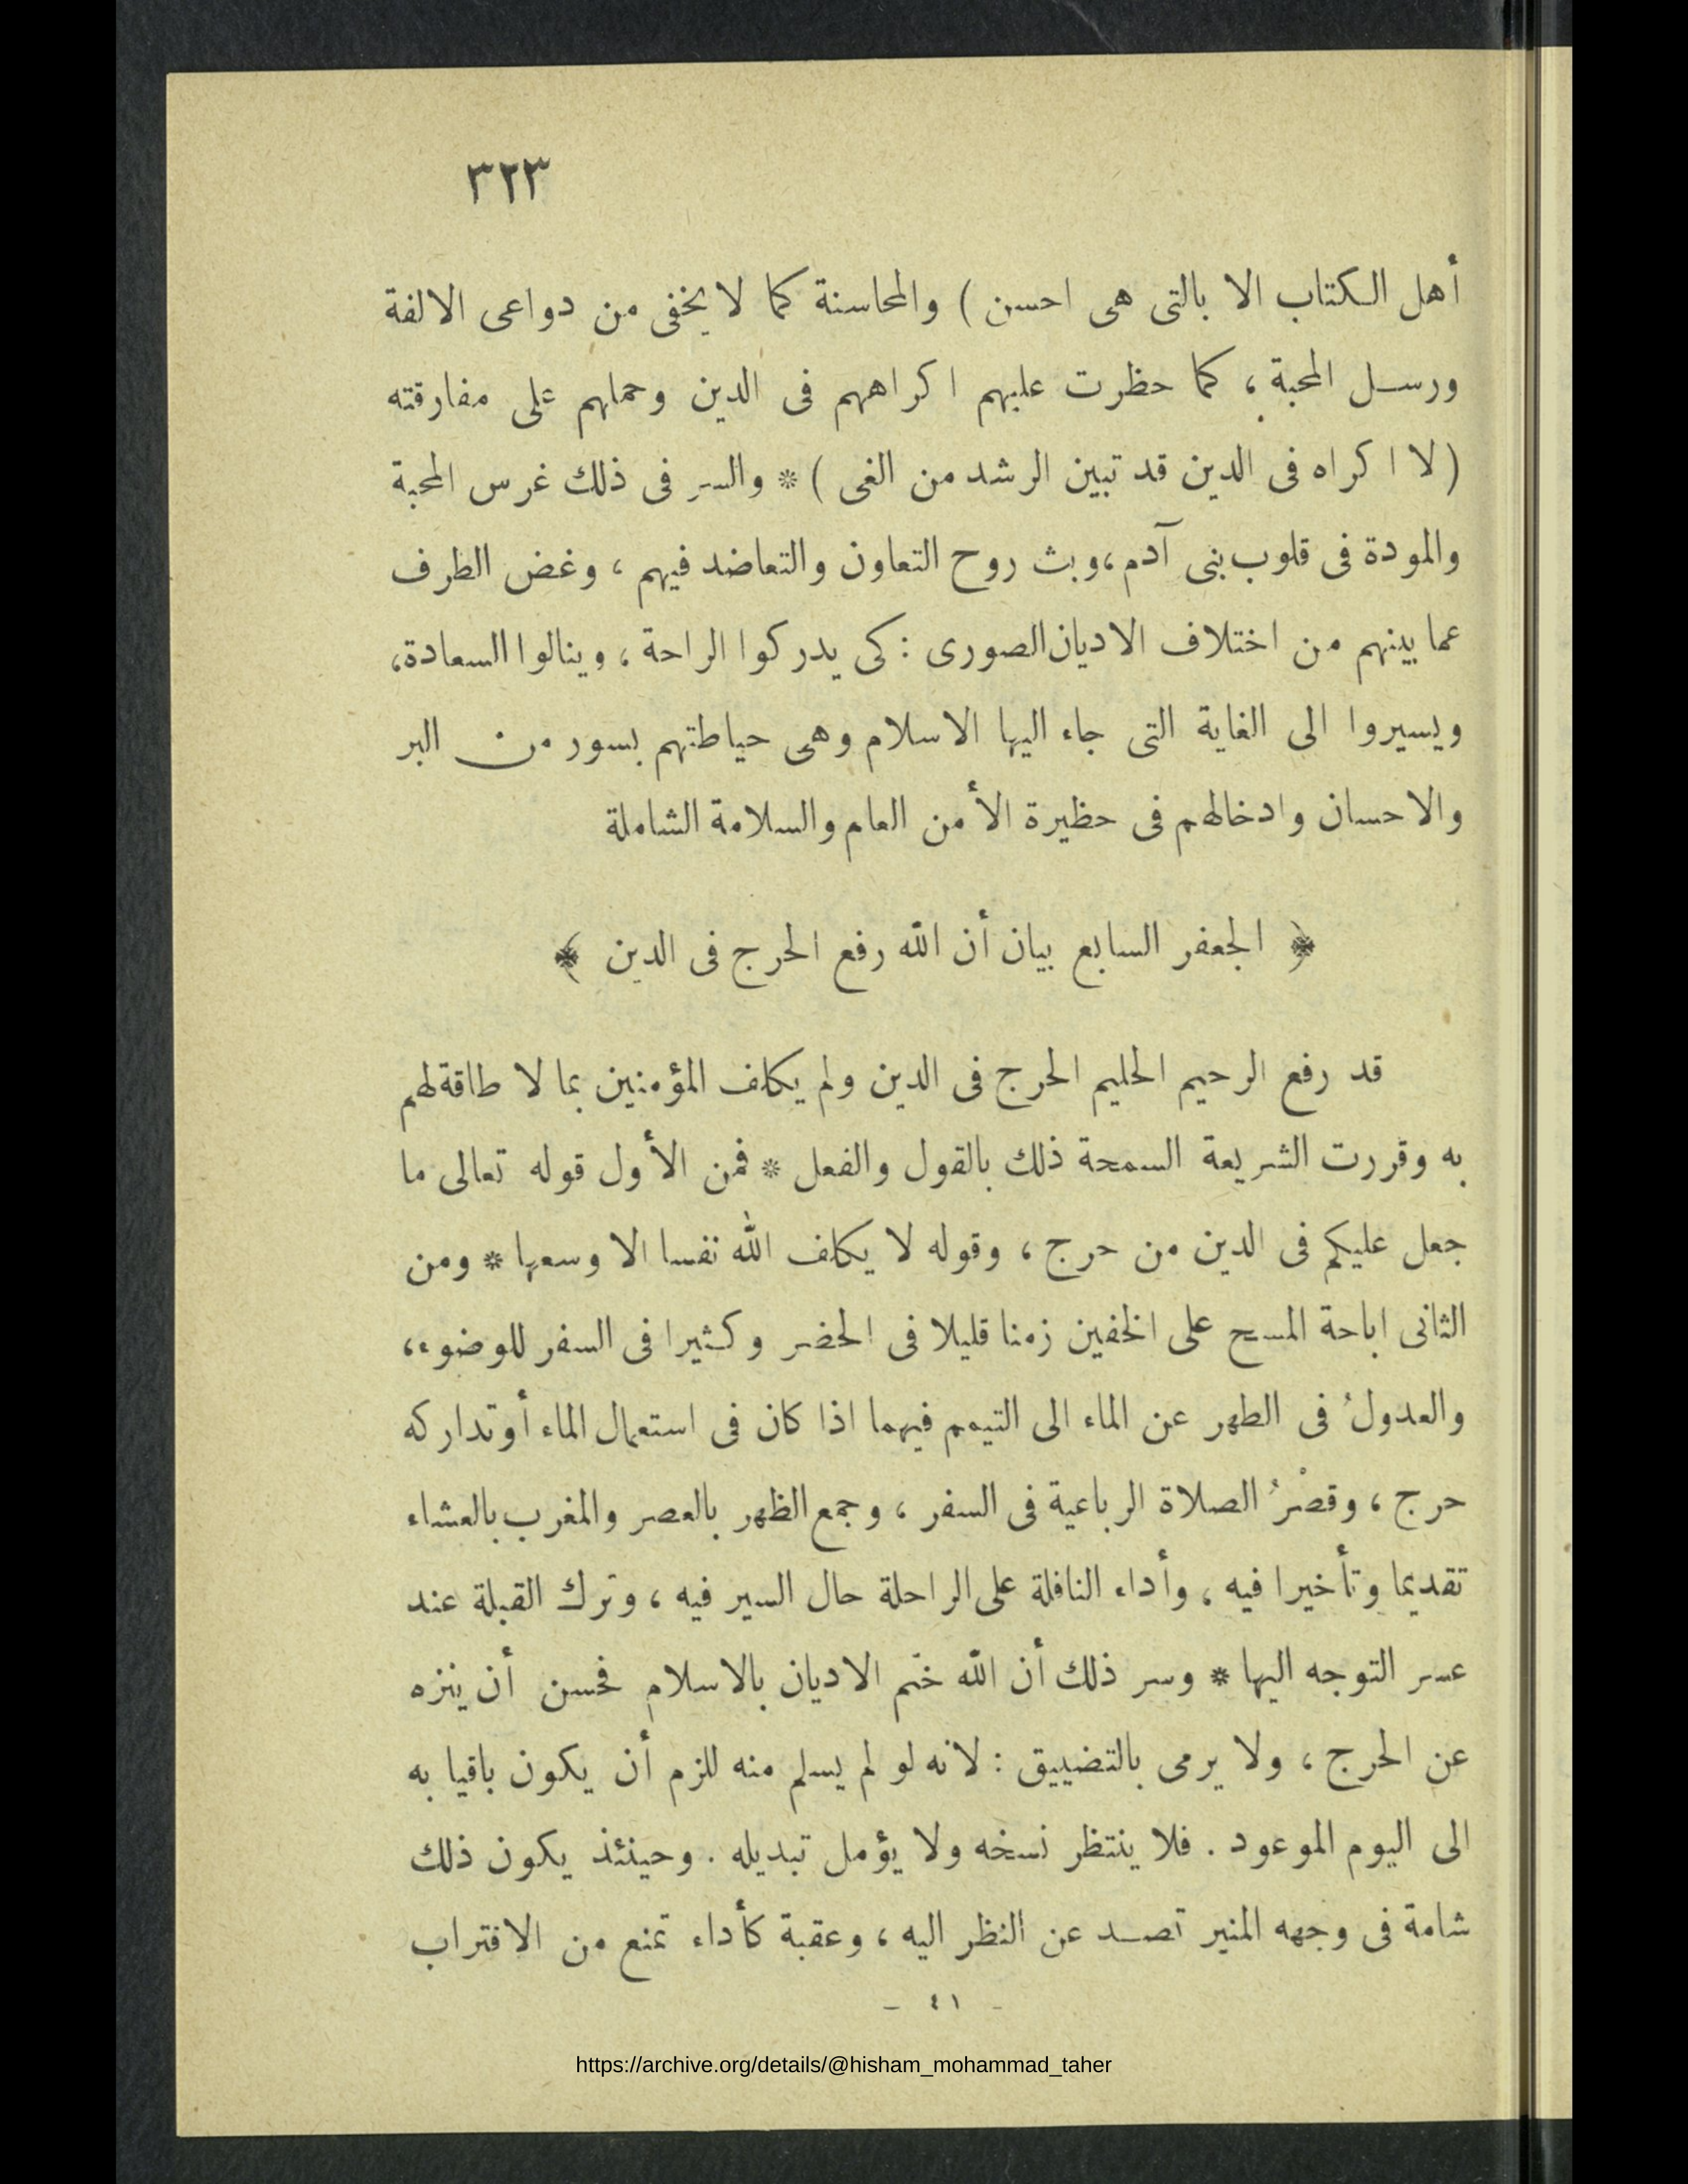 ٣٢٣
أهل الكتاب الا بالتى هى احسن ) والمحاسنة كما لا يخفى من دواعى الالفة
ورسل المحبة ، كما حظرت عليهم ا كراههم فى الدين وحملهم على مفارقته
( لا ا كراه فى الدين قد تبين الرشد من الغى ) * والسر فى ذلك غرس المحبة
والمودة فى قلوب بنى آدم ،وبث روح التعاون والتعاضد فيهم ، وغض الطرف
عما بينهم من اختلاف الاديان الصورى : كى يدركوا الراحة ، وينالوا السعادة،
ويسيروا الى الغاية التى جاء اليها الاسلام وهى حياطتهم بسور من البر
والاحسان وادخالهم فى حظيرة الأمن العام والسلامة الشاملة
﴿ الجعفر السابع بيان أن الله رفع الحرج فى الدين ﴾
قد رفع الرحيم الحليم الحرج فى الدين ولم يكلف المؤمنين بما لا طاقة لهم
به وقررت الشريعة السمحة ذلك بالقول والفعل * فمن الأول قوله تعالى ما
جعل عليكم فى الدين من حرج ، وقوله لا يكلف الله نفسا الا وسعها * ومن
الثانى اباحة المسح على الخفين زمنا قليلا فى الحضر وكثيرا فى السفر للوضوء،
والعدولُ فى الطهر عن الماء الى التيمم فيهما اذا كان فى استعمال الماء أو تداركه
حرج ، وقصْرُ الصلاة الرباعية فى السفر ، وجمع الظهر بالعصر والمغرب بالعشاء
تقديما وتأخيرا فيه ، وأداء النافلة على الراحلة حال السير فيه ، وترك القبلة عند
عسر التوجه اليها * وسر ذلك أن الله ختم الاديان بالاسلام فحسن أن ينزه
عن الحرج ، ولا يرمى بالتضييق : لانه لو لم يسلم منه للزم أن يكون باقيا به
الى اليوم الموعود . فلا ينتظر نسخه ولا يؤمل تبديله . وحينئذ يكون ذلك
شامة فى وجهه المنير تصد عن النظر اليه ، وعقبة كأداء تمنع من الاقتراب
- ٤١ -
https://archive.org/details/@hisham_mohammad_taher